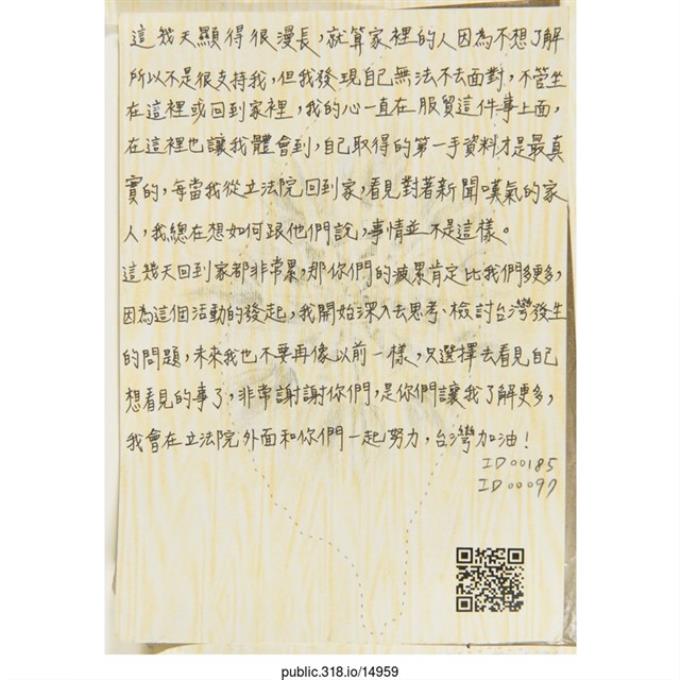 這幾天顯得很漫長，就算家裡的人因為不想了解
所以不是很支持我，但我發現自己無法不去面對，不管坐
在這裡或回到家裡，我的心一直在服貿這件事上面，
在這裡也讓我體會到，自己取得的第一手資料才是最真
實的，每當我從立法院回到家，看見對著新聞嘆氣的家
人，我總在想如何跟他們說，事情並不是這樣。
這幾天回到家都非常累，那你們的疲累肯定比我們多更多，
因為這個活動的發起，我開始深入去思考、檢討台灣發生
的問題，未來我也不要再像以前一樣，只選擇去看見自己
想看見的事了，非常謝謝你們，是你們讓我了解更多，
我會在立法院外面和你們一起努力，台灣加油！
ID00185
ID00097
public.318.io/14959